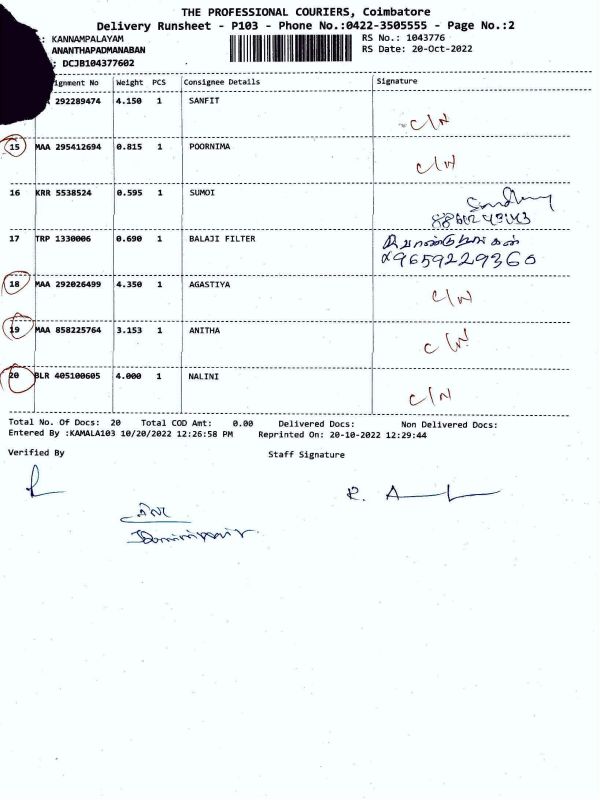 THE PROFESSIONAL COURIERS, Coimbatore
Delivery Runsheet - P103 - Phone No.:0422-3505555 - Page No.:2
: KANNAMPALAYAM RS No.: 1043776
ANANTHAPADMANABAN RS Date: 20-Oct-2022
: DCJB104377602
ignment No Weight PCS Consignee Details Signature
292289474 4.150 1 SANFIT C/N
15 MAA 295412694 0.815 1 POORNIMA C/N
16 KRR 5538524 0.595 1 SUMOI
17 TRP 1330006 0.690 1 BALAJI FILTER
9659229360
18 MAA 292026499 4.350 1 AGASTIYA C/N
19 MAA 858225764 3.153 1 ANITHA C/N
20 BLR 405100605 4.000 1 NALINI C/N
Total No. Of Docs: 20 Total COD Amt: 0.00 Delivered Docs: Non Delivered Docs:
Entered By :KAMALA103 10/20/2022 12:26:58 PM Reprinted On: 20-10-2022 12:29:44
Verified By Staff Signature
R.